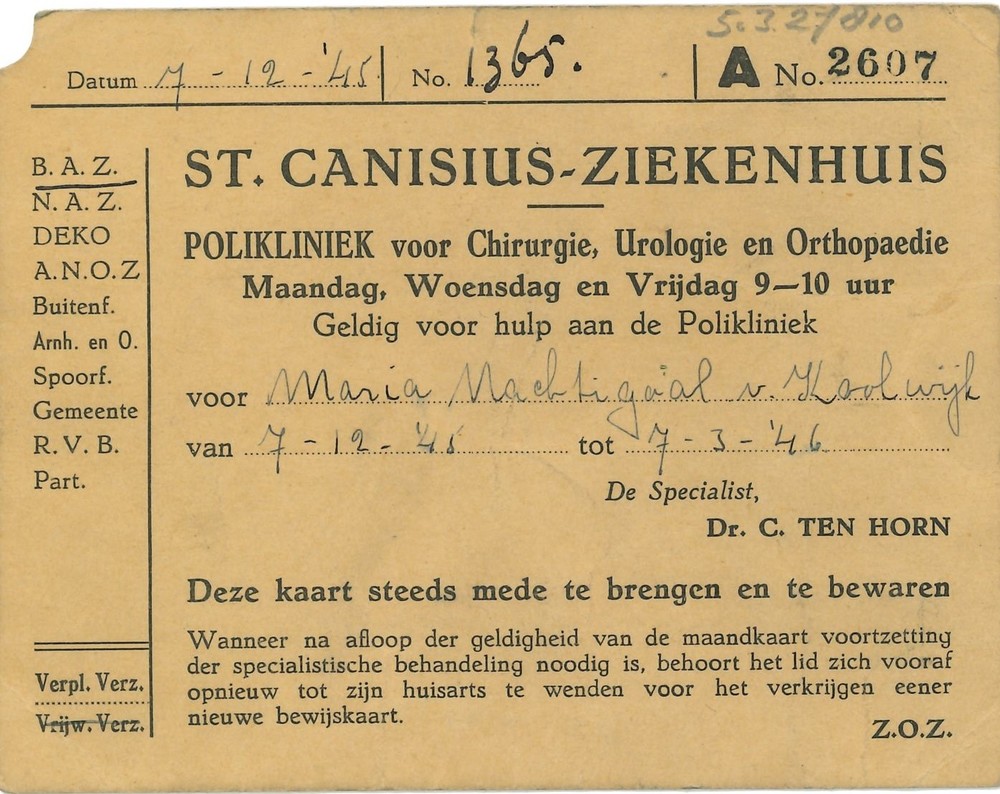 5.3.27810
Datum 7 - 12 - '45 No. 1365. A No. 2607
B. A. Z.
N. A. Z.
DEKO
A.N.O.Z
Buitenf.
Arnh. en O.
Spoorf.
Gemeente
R. V. B.
Part.
Verpl. Verz.
Vrijw. Verz.
ST. CANISIUS-ZIEKENHUIS
POLIKLINIEK voor Chirurgie, Urologie en Orthopaedie
Maandag, Woensdag en Vrijdag 9—10 uur
Geldig voor hulp aan de Polikliniek
voor Maria Nachtigaal v. Koolwijk
van 7 - 12 - '45 tot 7 - 3 - '46
De Specialist,
Dr. C. TEN HORN
Deze kaart steeds mede te brengen en te bewaren
Wanneer na afloop der geldigheid van de maandkaart voortzetting
der specialistische behandeling noodig is, behoort het lid zich vooraf
opnieuw tot zijn huisarts te wenden voor het verkrijgen eener
nieuwe bewijskaart.
Z.O.Z.